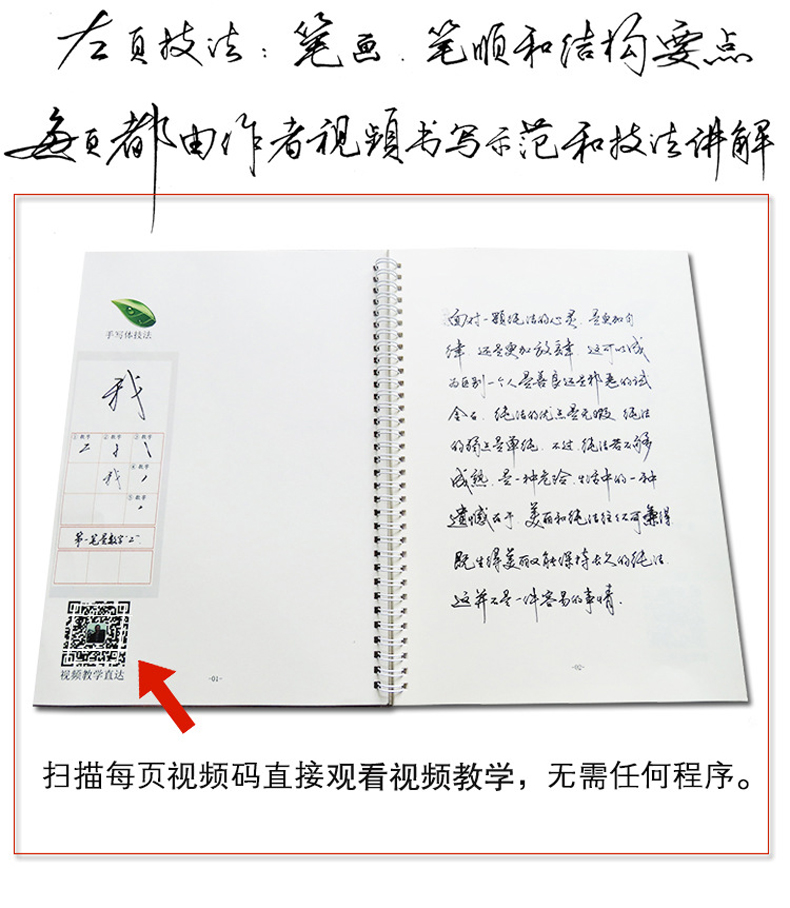 左页技法：笔画．笔顺和结构要点
每页都由作者视频书写示范和技法讲解
手写体技法
我
①数字 ②数字 ③数字
④数字
我
⑤数字
第一笔是数字"2"
视频教学直达
-01-
面对一颗纯洁的心灵，是更加自
律，还是更加放肆，这可以成
为区别一个人是善良还是邪恶的试
金石，纯洁的优点是无瑕，纯洁
的弱点是单纯，不过，纯洁若不够
成熟，是一种危险，生活中的一种
遗憾在于，美丽和纯洁往往不可兼得，
既生得美丽又能保持长久的纯洁，
这并不是一件容易的事情．
-02-
扫描每页视频码直接观看视频教学，无需任何程序。